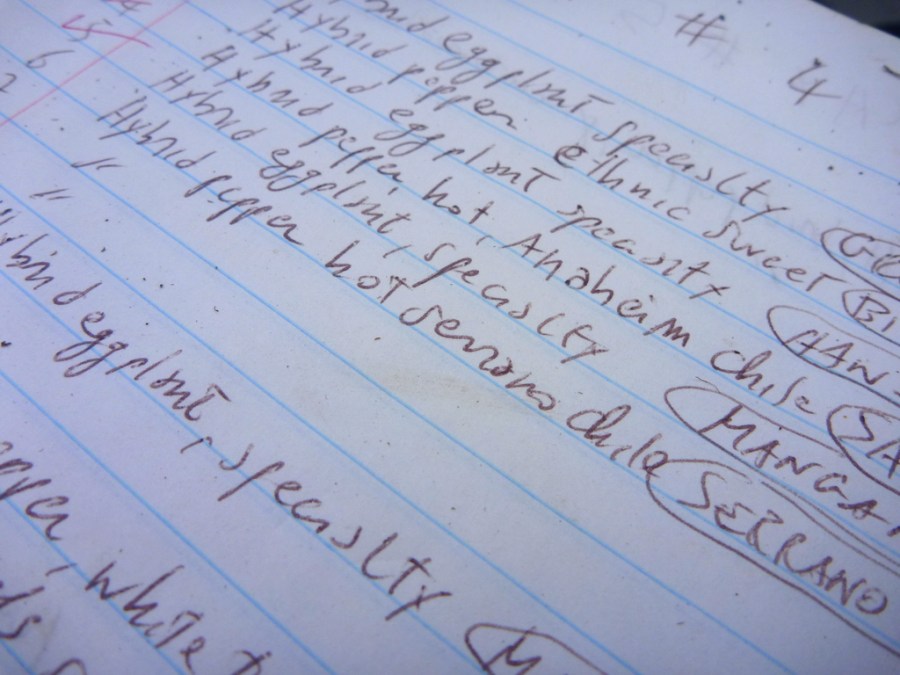 # 4
eggplant specialty
Hybrid pepper ethnic sweet BI
Hybrid eggplant specialty HAN
Hybrid pepper hot, Anaheim chile SA
Hybrid eggplant, specialty MANGA
Hybrid pepper hot serrano chile SERRANO
" "
eggplant, specialty M
white